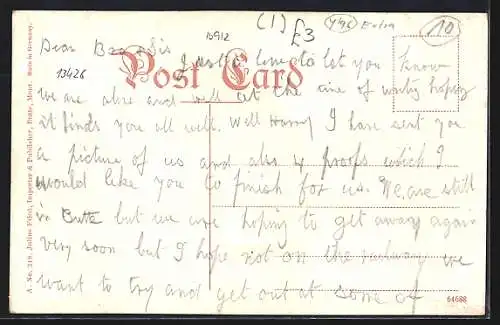 10912
(1) £3
496 Extra
10
Dear Bro & Sis
Just a line to let you know
13426
Post Card
we are alive and well at the time of writing hoping
it finds you all well. Well Harry I have sent you
a picture of us and also 4 proofs which I
would like you to finish for us. We are still
in Butte but we are hoping to get away again
very soon but I hope not on the railway we
want to try and get out at some of
A. No. 219. Julius Fried, Importer & Publisher, Butte, Mont. Made in Germany.
64688